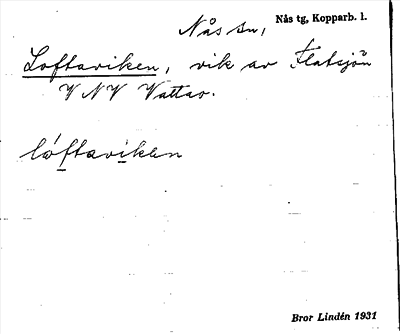 Nås sn, Nås tg, Kopparb. l.
Loftaviken, vik av Flatsjön
V NV Vattar.
lóftavikƐn
Bror Lindén 1931